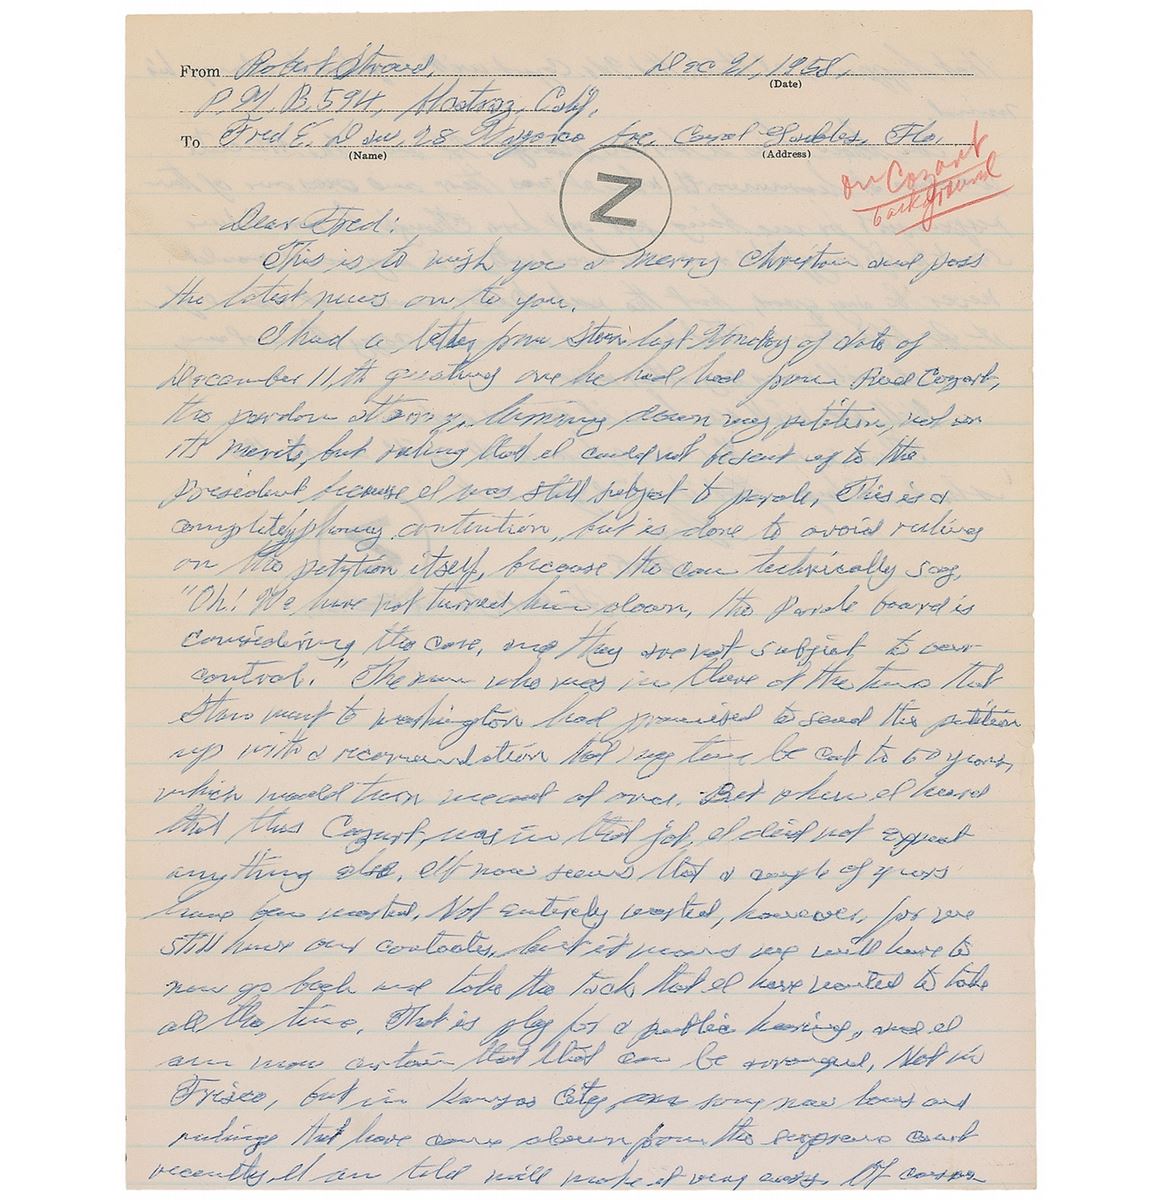 From Robert Stroud, Dec 21, 1958,
(Date)
P.M.B. 594, Alcatraz, Calif,
To Fred E. Daw, 28 Ave, Coral Gables, Fla,
(Name) (Address)
on Cozart
background
N
Dear Fred:
This is to wish you a merry Christmas and pass
the latest news on to you.
I had a letter from Stan last Monday of date of
December 11th quoting one he had, had from Reed Cozart,
the pardon attorney, turning down my petition, not on
it's merits, but ruling that it could not be sent up to the
President because I was still subject to parole, This is a
completely phoney contention, but is done to avoid ruling
on the petition itself, because the can technically say,
"Oh! We have not turned him down, the Parole board is
considering the case, and they are not subject to our
control." The man who was in there at the time that
Stan went to Washington had promised to send the petition
up with a recommendation that my time be cut to 60 years,
which would turn me out at once. But when I heard
that this Cozart, was in that job, I did not expect
anything else. It now seems that a couple of years
have been wasted. Not entirely wasted, however, for we
still have our contacts, but it means we will have to
now go back and take the tack that I have wanted to take
all the time, That is play for a public hearing, and I
am now certain that that can be arranged, Not in
Frisco, but in Kansas City, some new laws and
rulings that have come down from the supreme court
recently, I am told will make it very easy. Of course